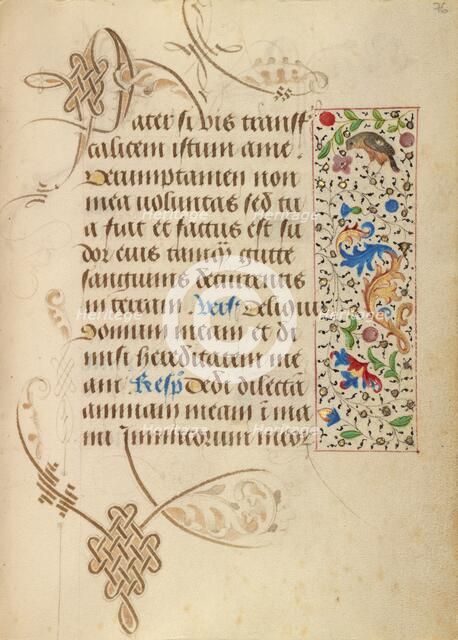 76
Pater si vis transfer
calicem istum a me.
Verumptamen non
mea voluntas sed tu
a fiat et factus est su
dor eius tamquam gutte
sanguinis decurrentis
in terram Vers Reliqui
domum meam et di
misi hereditatem me
am Resp Dedi dilectam
animam meam in ma
nu inimicorum meor
Heritage
Heritage
Heritage
Heritage
Heritage
Heritage